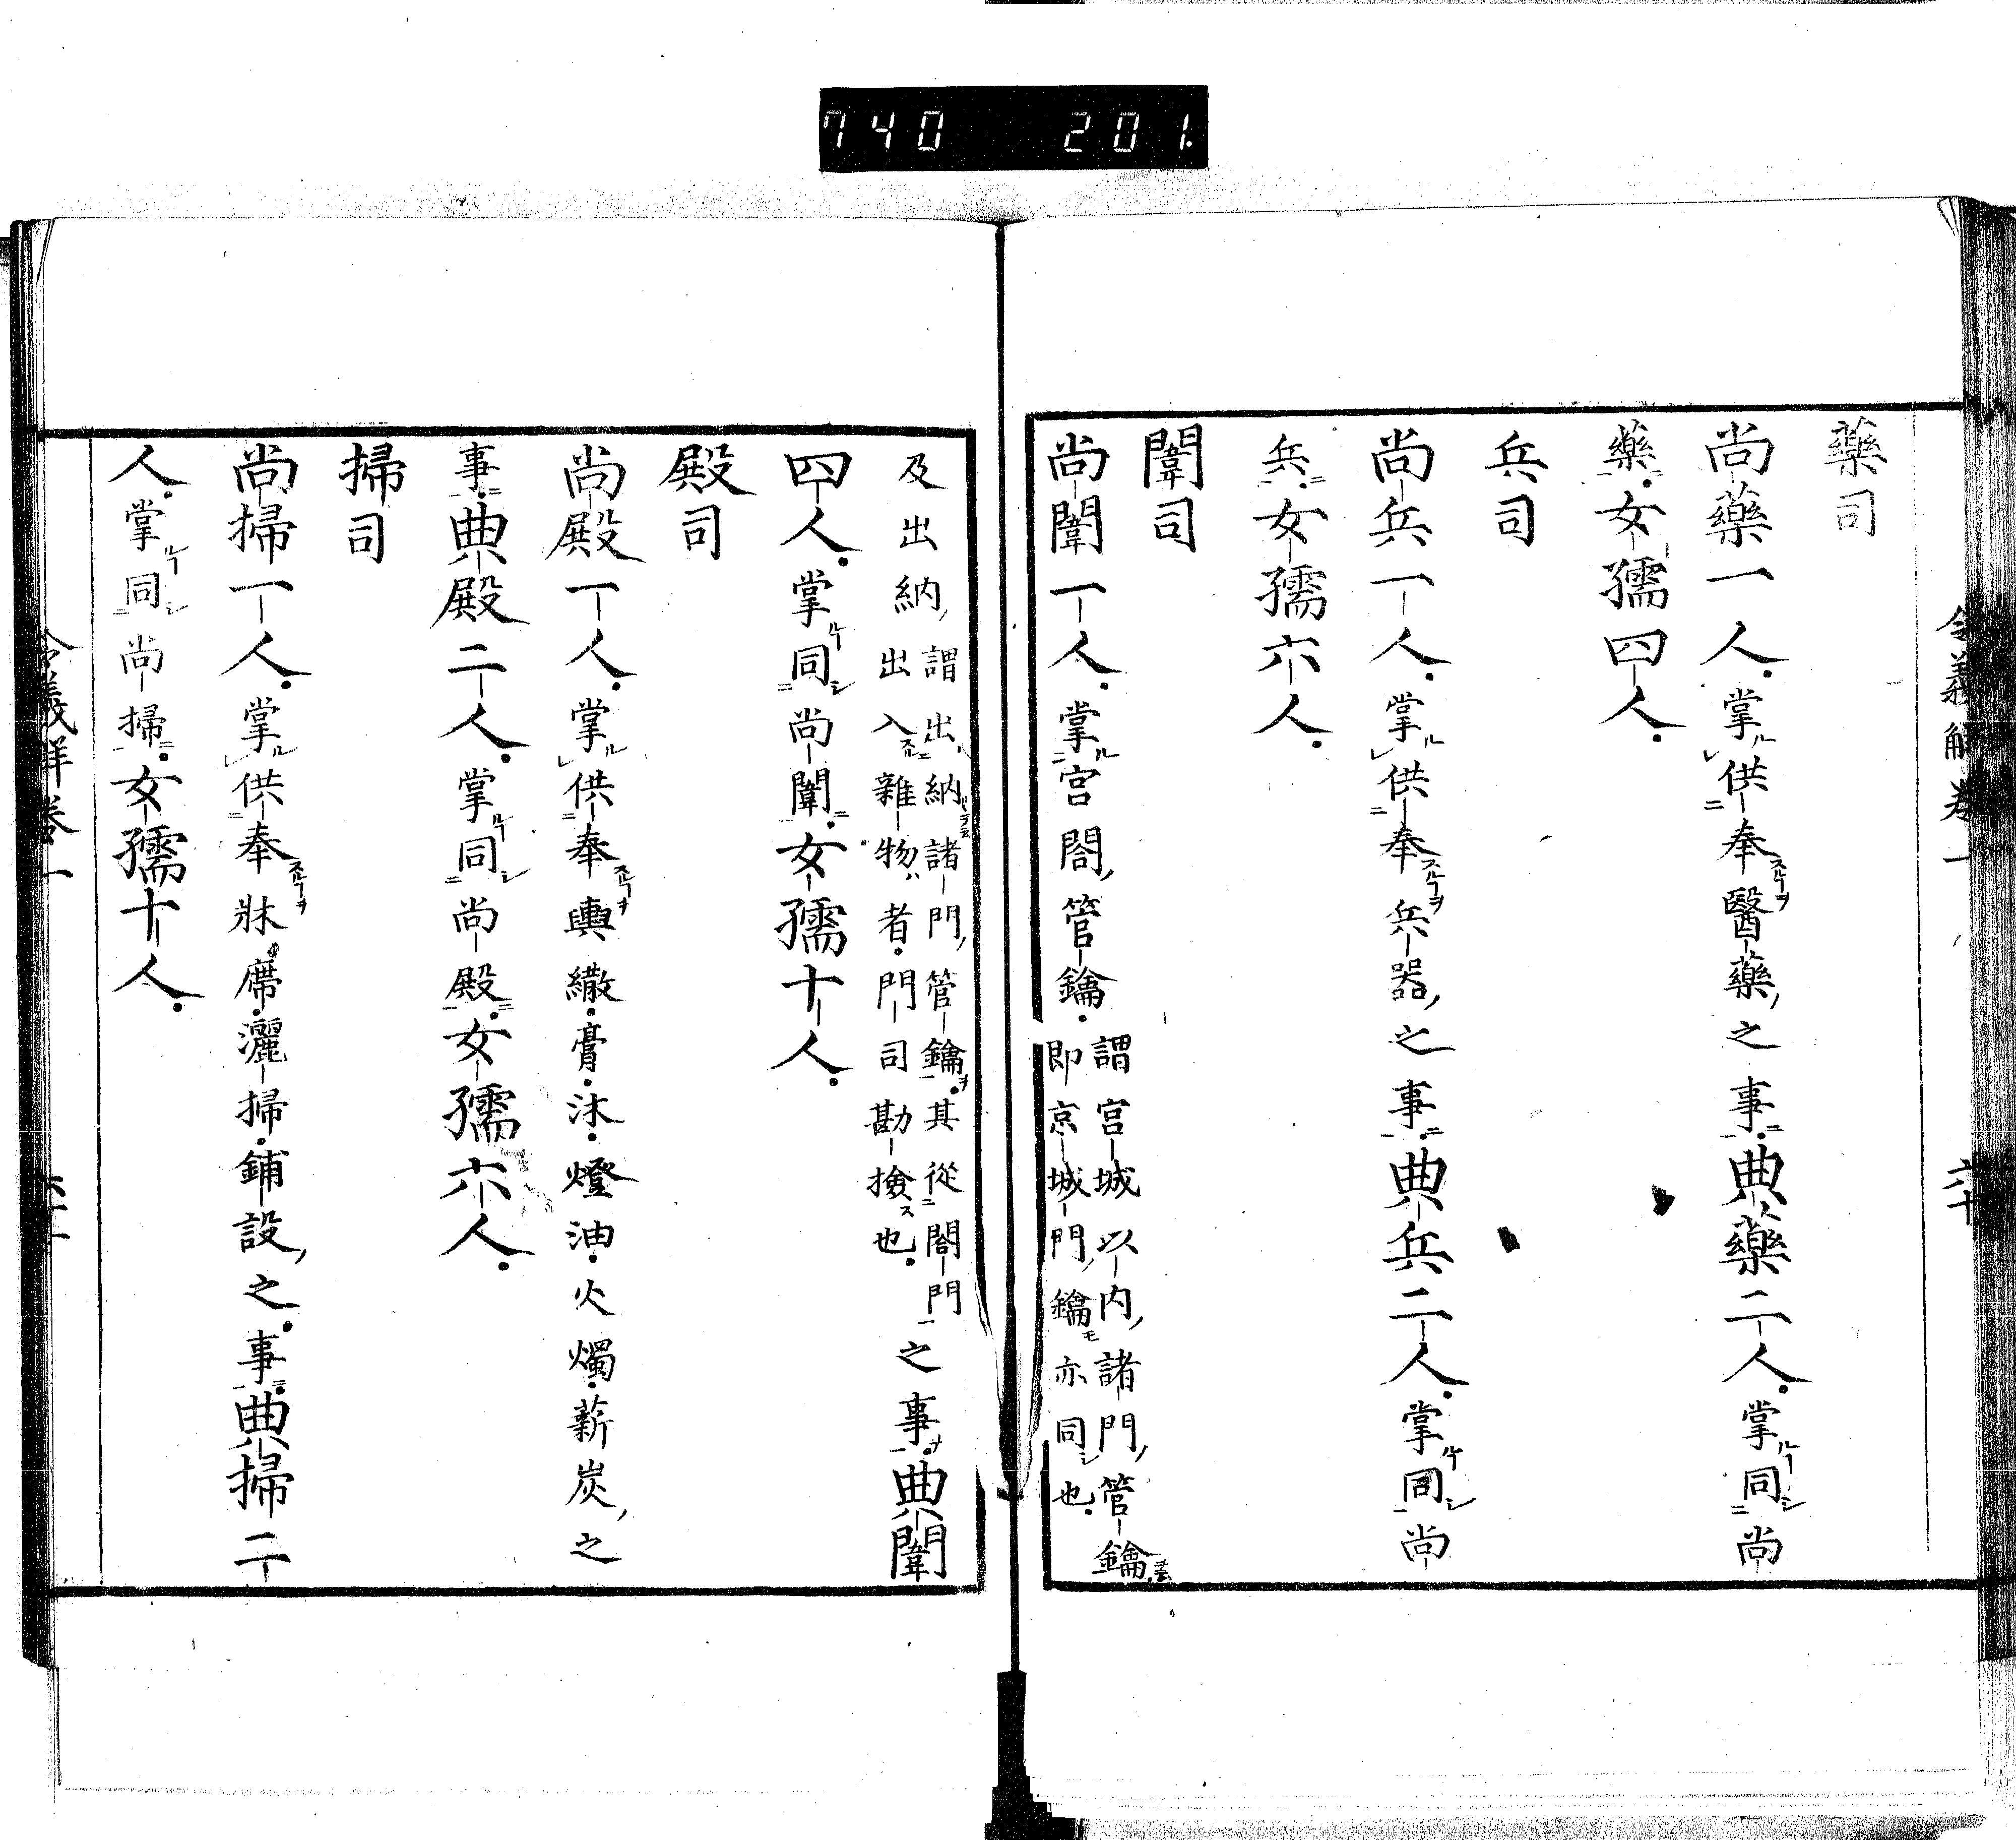 740 201.
令義解卷一 六十
藥司
尚藥一人掌供奉醫藥之事典藥二人掌同尚
藥女孺四人
兵司
尚兵一人掌供奉兵器之事典兵二人掌同尚
兵女孺六人
闈司
尚闈一人掌宮閤管鑰謂宮城以内諸門管鑰即京城門鑰亦同也
及出納謂出納諸門管鑰其從閤門出入雜物者門司勘撿也之事典闈
四人掌同尚闈女孺十人
殿司
尚殿一人掌供奉輿繖膏沐燈油火燭薪炭之
事典殿二人掌同尚殿女孺六人
掃司
尚掃一人掌供奉牀席灑掃鋪設之事典掃二
人掌同尚掃女孺十人